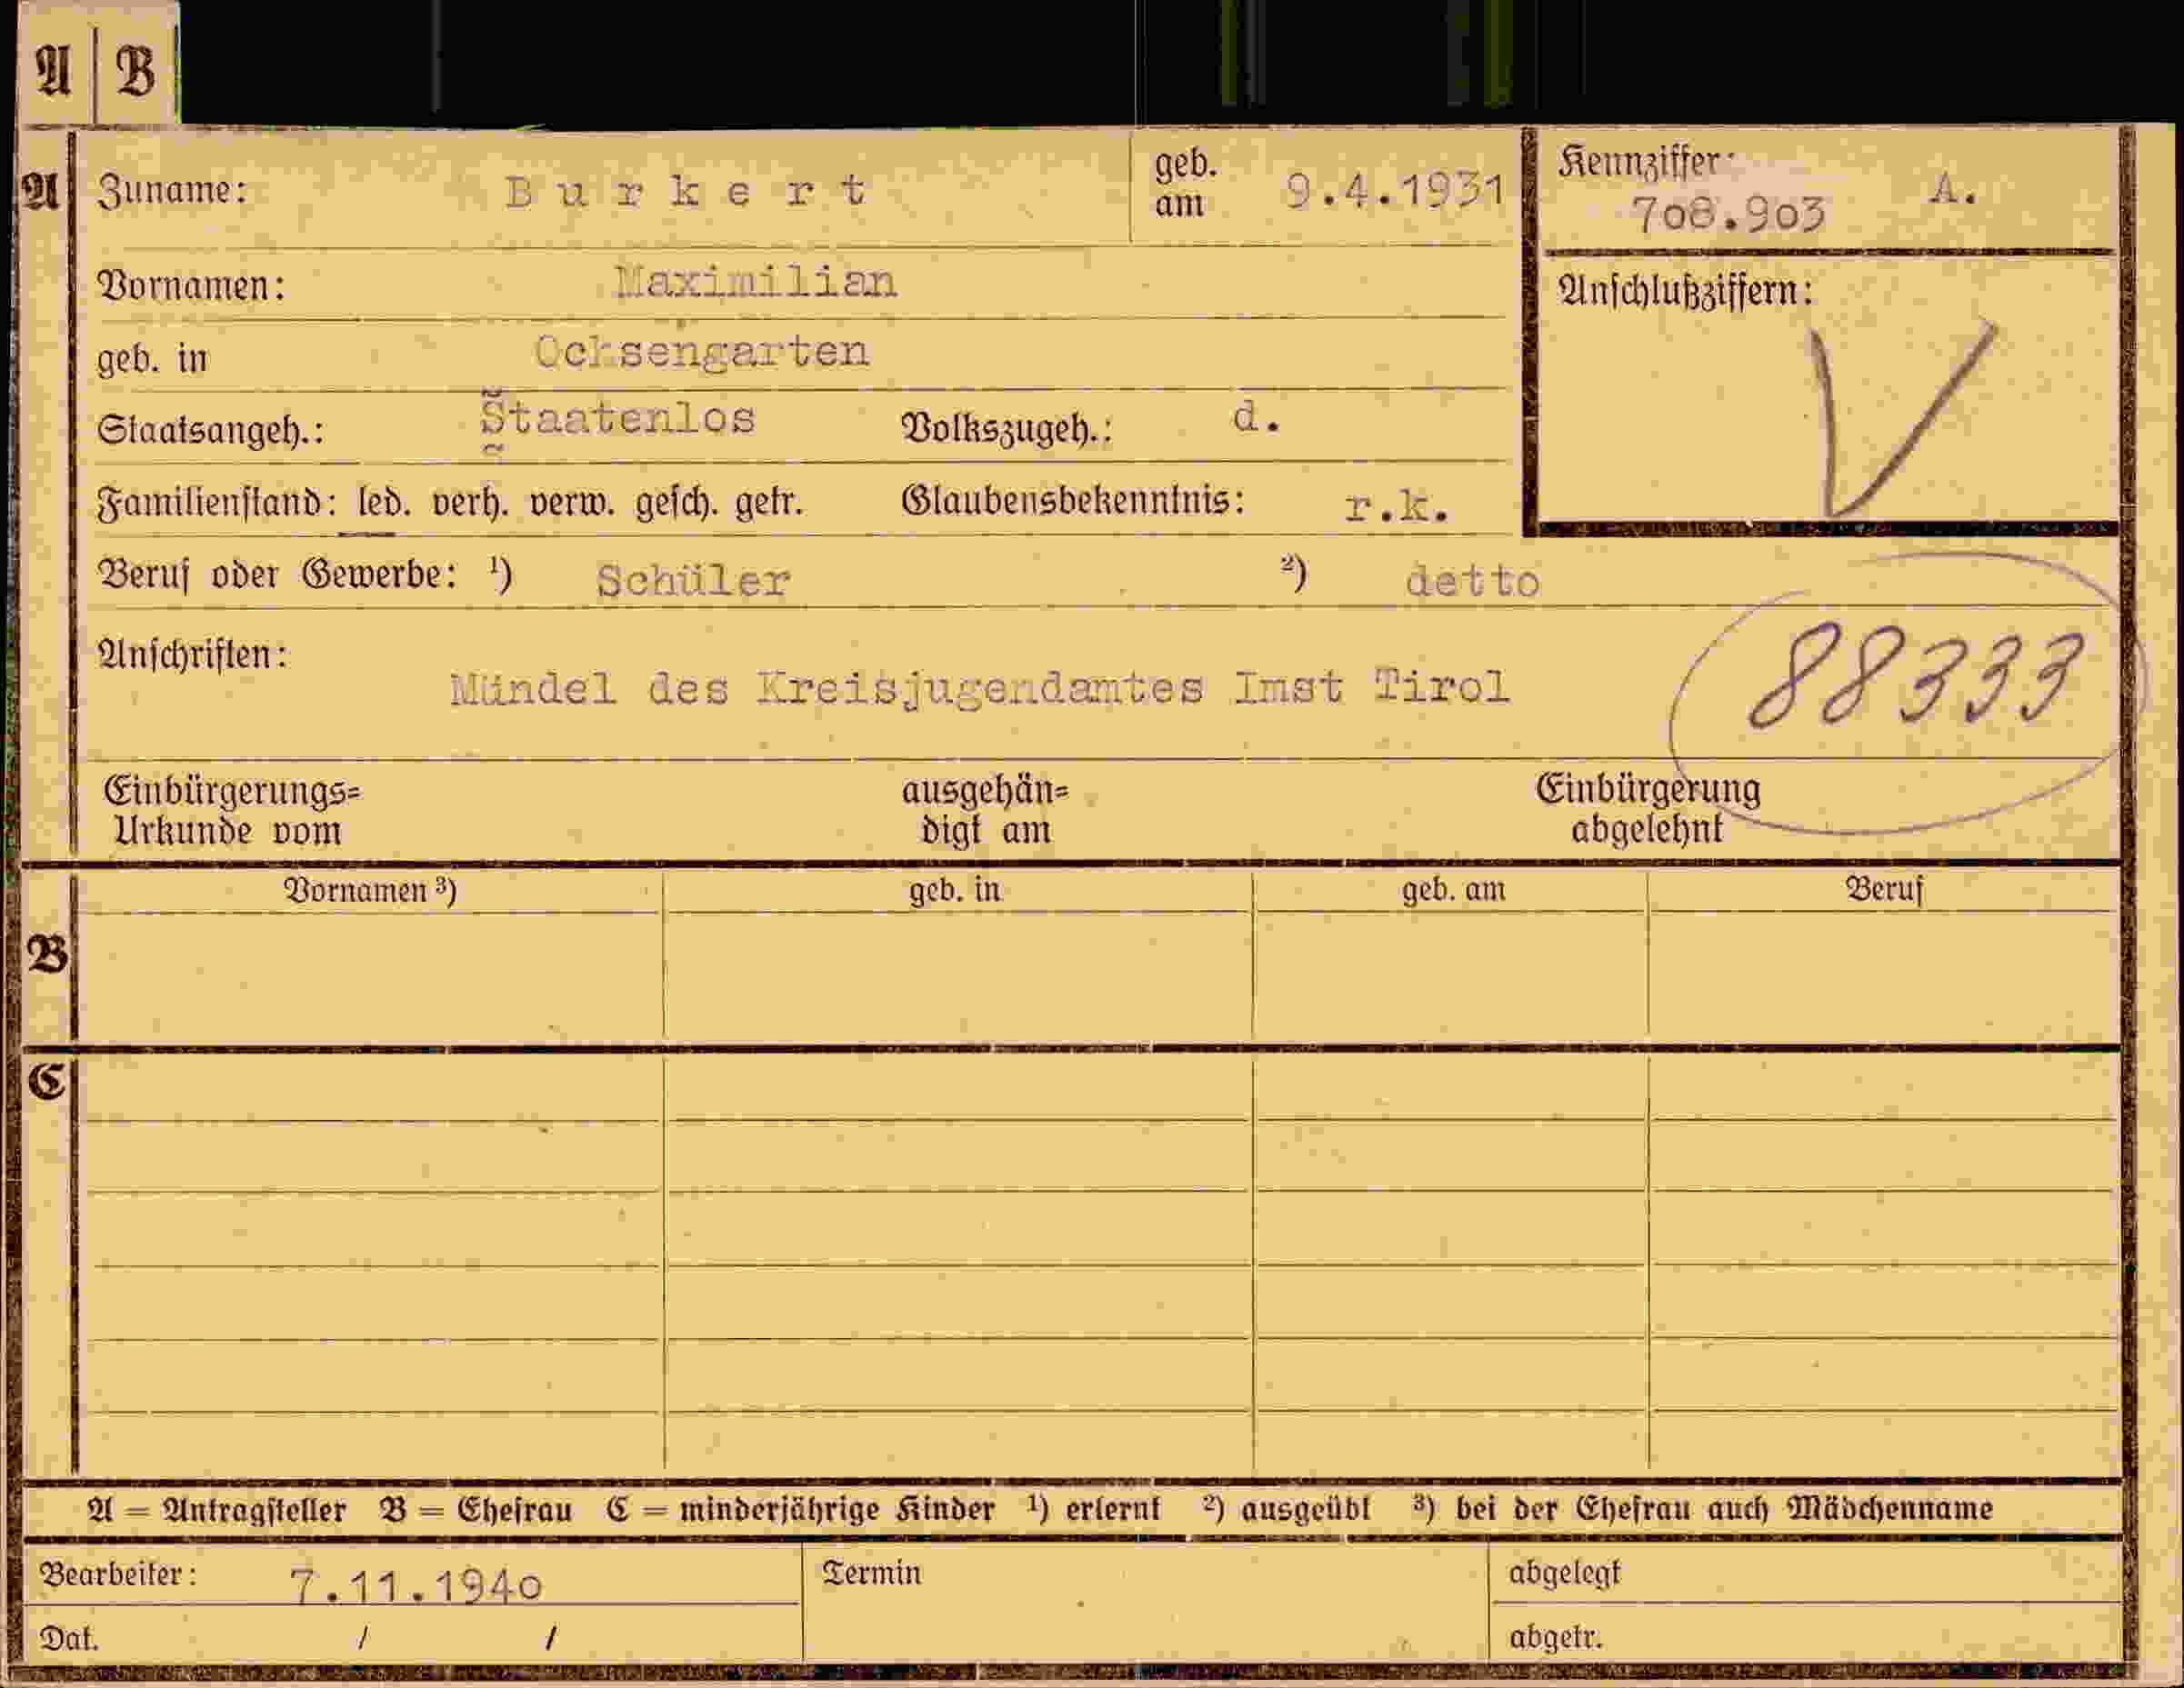 A | B
A Zuname: Burkert geb. am 9.4.1931 Kennziffer: 708.903 A.
Vornamen: Maximilian Anschlußziffern:
geb. in Ochsengarten
Staatsangeh.: Staatenlos Volkszugeh.: d.
Familienstand: led. verh. verw. gesch. getr. Glaubensbekenntnis: r.k.
Beruf oder Gewerbe: ¹) Schüler ²) detto
Anschriften: Mündel des Kreisjugendamtes Imst Tirol 88333
Einbürgerungs= ausgehän= Einbürgerung
Urkunde vom digt am abgelehnt
Vornamen ³) geb. in geb. am Beruf
B
C
A = Antragsteller B = Ehefrau C = minderjährige Kinder ¹) erlernt ²) ausgeübt ³) bei der Ehefrau auch Mädchenname
Bearbeiter: 7.11.1940 Termin abgelegt
Dat. / / abgetr.